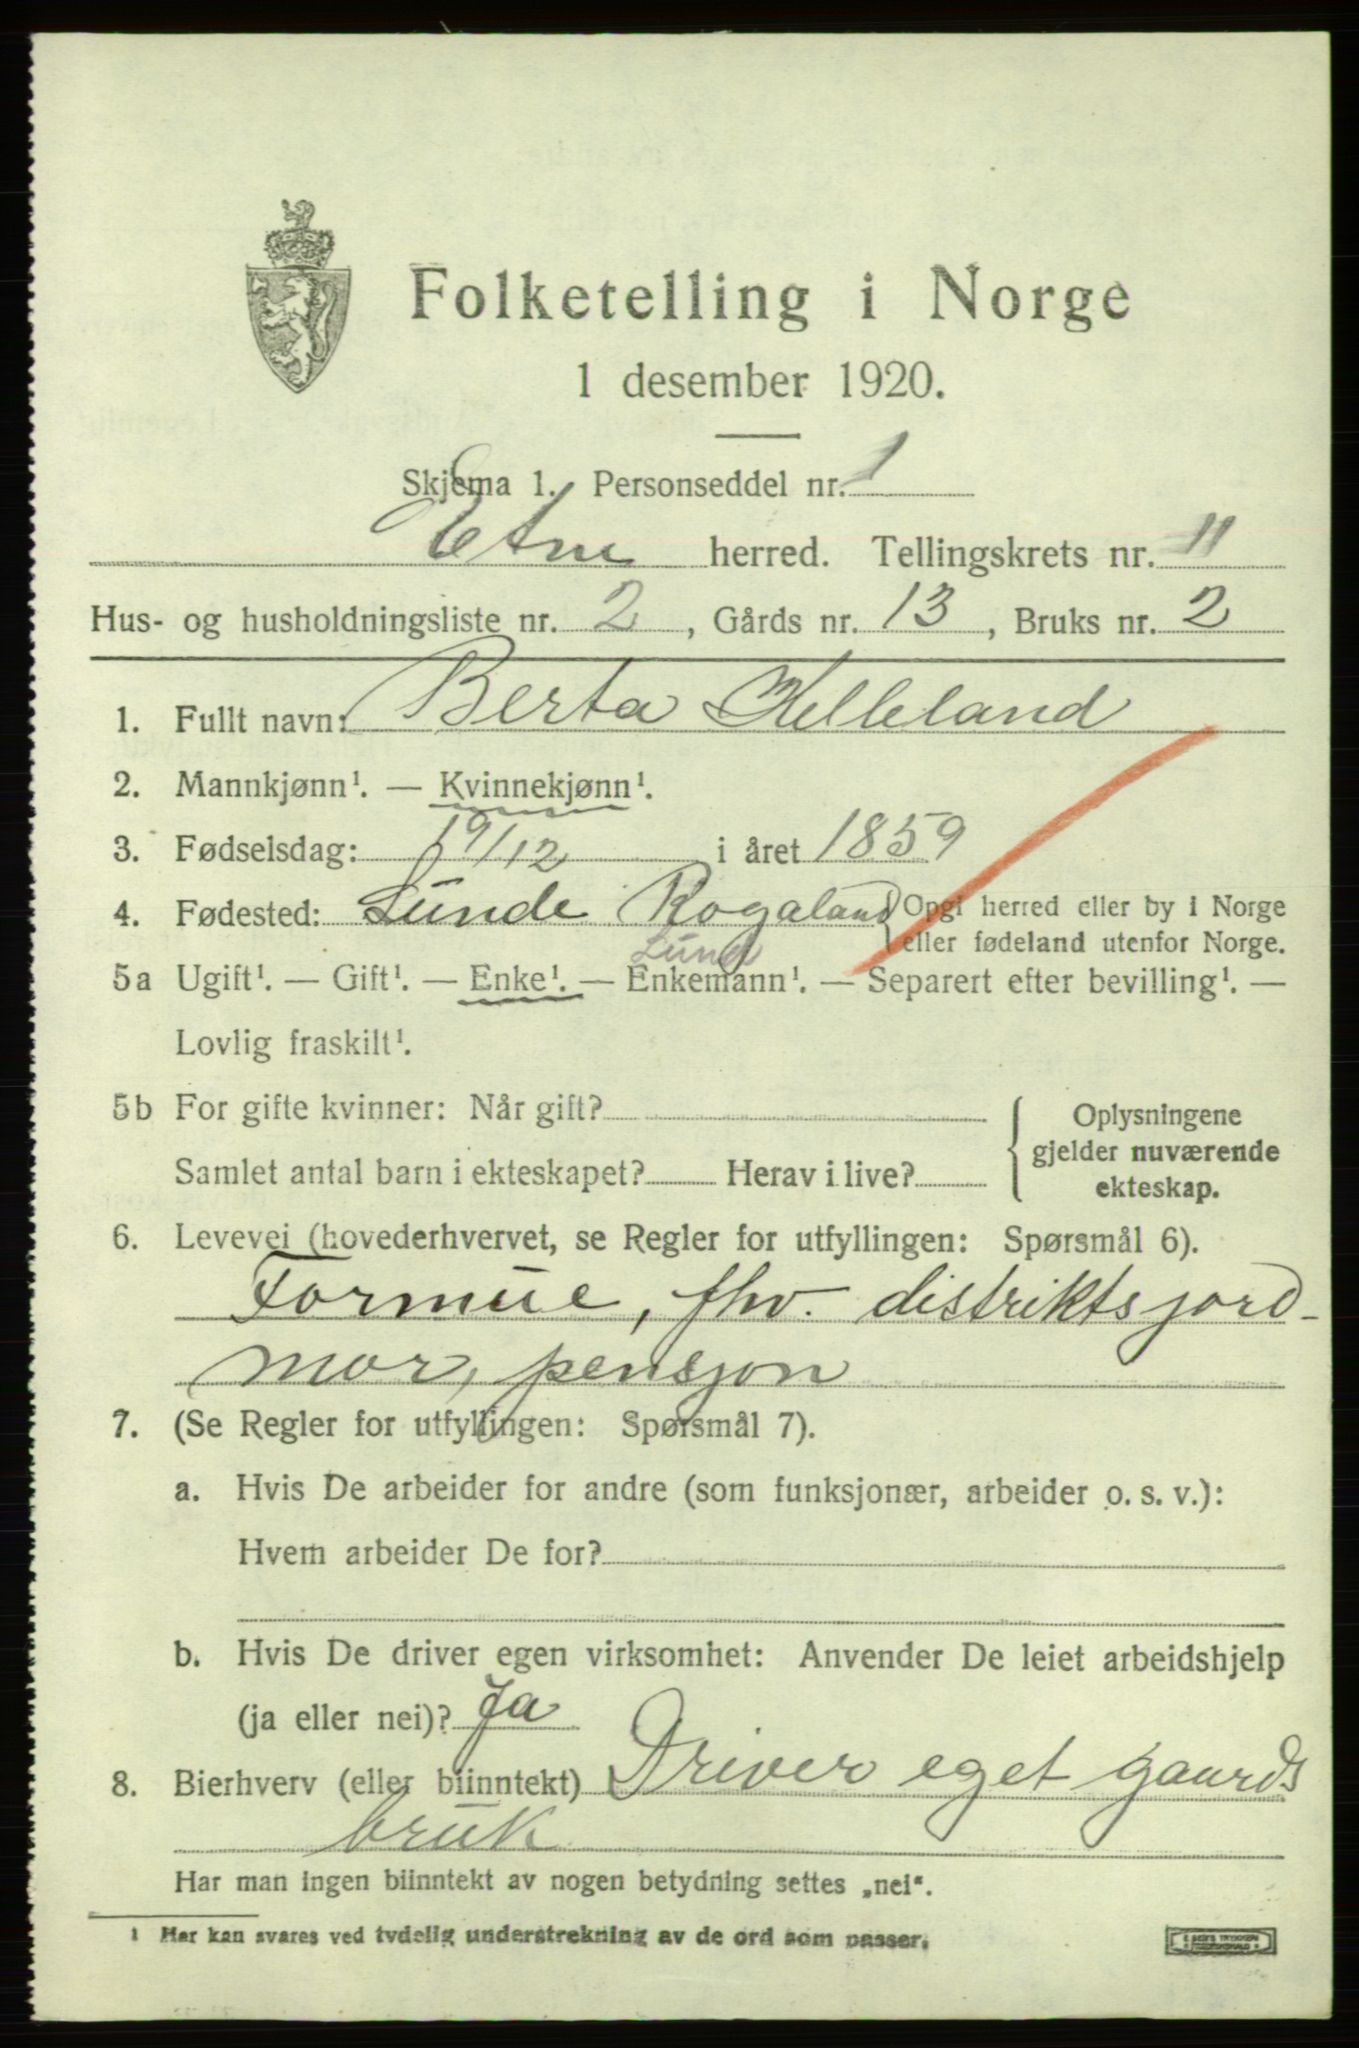 Folketelling i Norge
1 desember 1920.
Skjema 1. Personseddel nr. 1
Etne herred. Tellingskrets nr. 11
Hus- og husholdningsliste nr. 2, Gårds nr. 13, Bruks nr. 2
1. Fullt navn: Berta Helleland
2. Mannkjønn¹. — Kvinnekjønn¹.
3. Fødselsdag: 19/12 i året 1859
4. Fødested: Lunde Rogaland {Opgi herred eller by i Norge
eller fødeland utenfor Norge.
Lund
5a Ugift¹. — Gift¹. — Enke¹. — Enkemann¹. — Separert efter bevilling¹. —
Lovlig fraskilt¹.
5b For gifte kvinner: Når gift?
Samlet antal barn i ekteskapet? Herav i live?
Oplysningene
gjelder nuværende
ekteskap.
6. Levevei (hovederhvervet, se Regler for utfyllingen: Spørsmål 6).
Formue, fhv. distriktsjord-
mor, pensjon
7. (Se Regler for utfyllingen: Spørsmål 7).
a. Hvis De arbeider for andre (som funksjonær, arbeider o. s. v.):
Hvem arbeider De for?
b. Hvis De driver egen virksomhet: Anvender De leiet arbeidshjelp
(ja eller nei)? Ja
8. Bierhverv (eller biinntekt) Driver eget gaards
bruk
Har man ingen biinntekt av nogen betydning settes „nei“.
1 Her kan svares ved tydelig understrekning av de ord som passer.